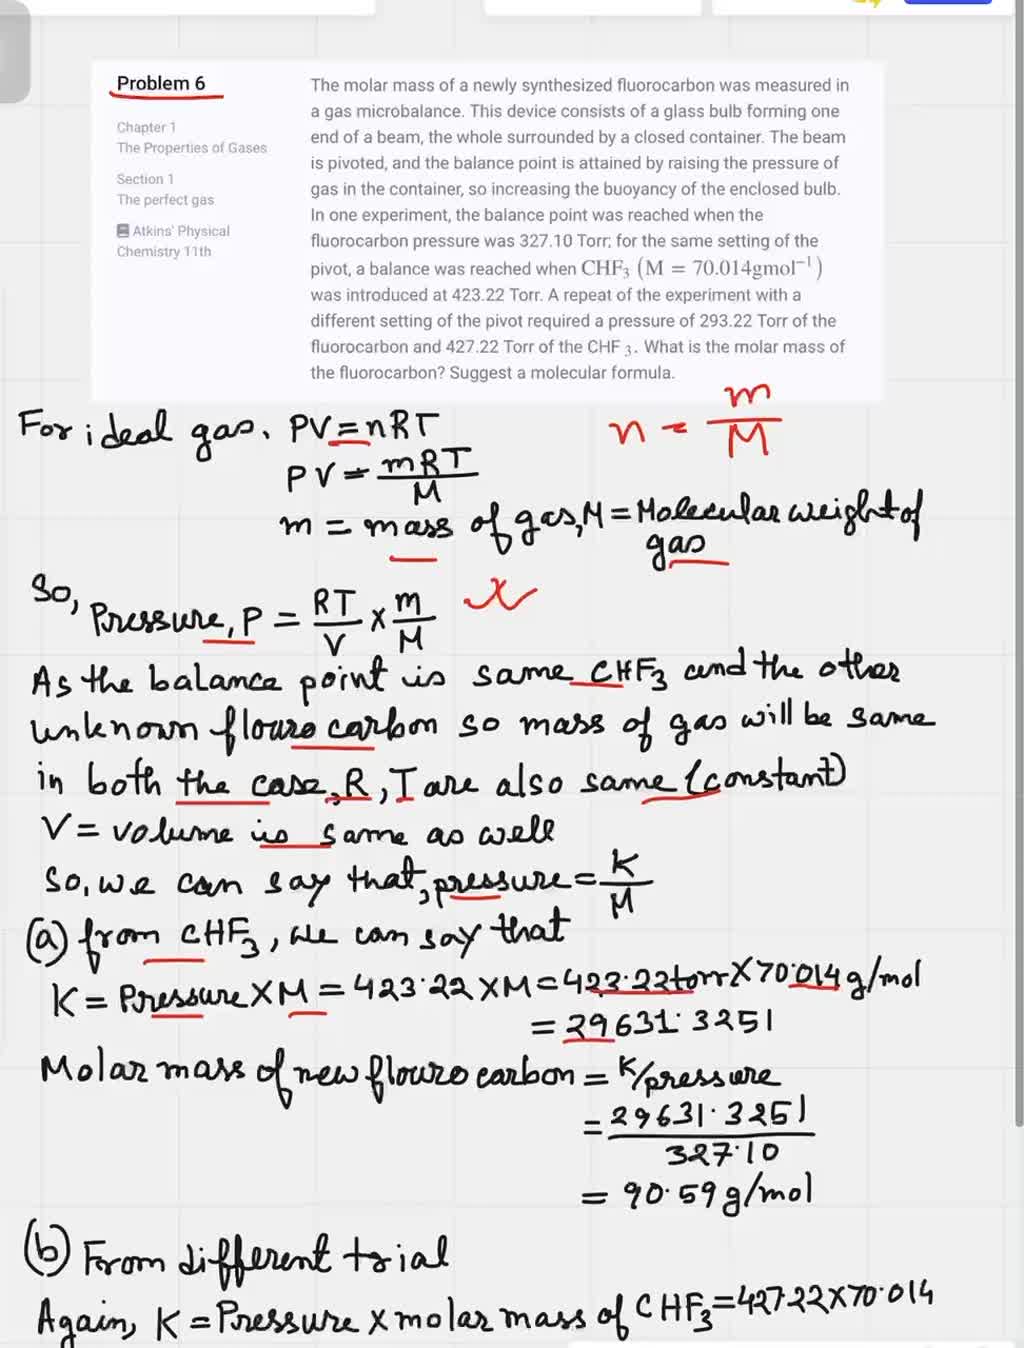 Problem 6
Chapter 1
The Properties of Gases
Section 1
The perfect gas
Atkins' Physical
Chemistry 11th
The molar mass of a newly synthesized fluorocarbon was measured in
a gas microbalance. This device consists of a glass bulb forming one
end of a beam, the whole surrounded by a closed container. The beam
is pivoted, and the balance point is attained by raising the pressure of
gas in the container, so increasing the buoyancy of the enclosed bulb.
In one experiment, the balance point was reached when the
fluorocarbon pressure was 327.10 Torr; for the same setting of the
pivot, a balance was reached when CHF₃ (M = 70.014gmol⁻¹)
was introduced at 423.22 Torr. A repeat of the experiment with a
different setting of the pivot required a pressure of 293.22 Torr of the
fluorocarbon and 427.22 Torr of the CHF ₃. What is the molar mass of
the fluorocarbon? Suggest a molecular formula.
For ideal gas, PV = nRT
n = m/M
PV = mRT/M
m = mass of gas, M = Molecular weight of
gas
So, Pressure, P = RT/V × m/M
As the balance point is same CHF₃ and the other
unknown flouro carbon so mass of gas will be same
in both the case, R, T are also same (constant)
V = volume is same as well
So, we can say that, pressure = K/M
(a) from CHF₃, we can say that
K = Pressure × M = 423.22 × M = 423.22 torr × 70.014 g/mol
= 29631.3251
Molar mass of new flouro carbon = K/pressure
= 29631.3251/327.10
= 90.59 g/mol
(b) From different trial
Again, K = Pressure × molar mass of CHF₃ = 427.22 × 70.014